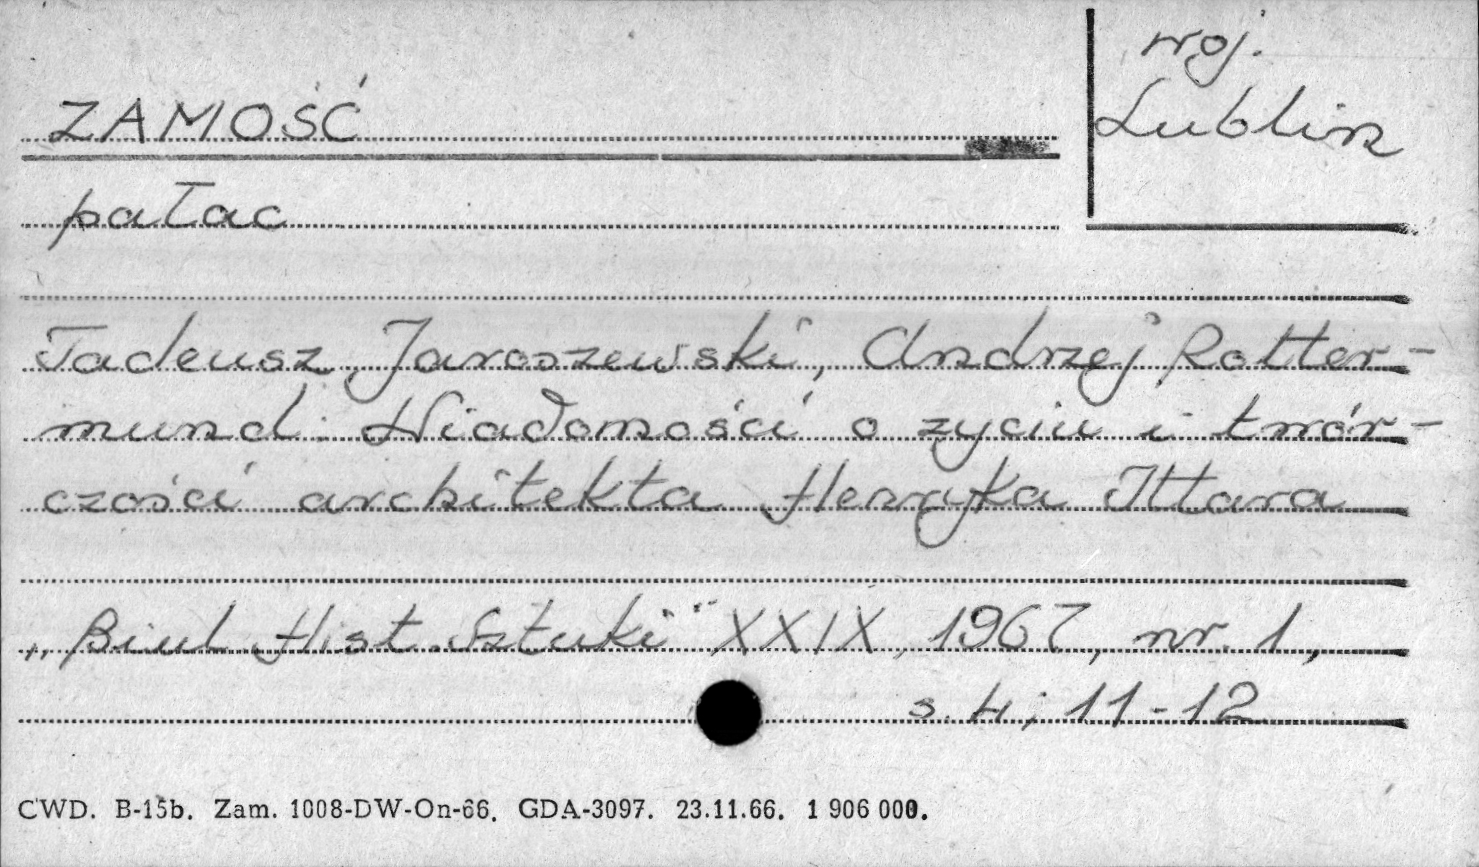 woj.
Lublin
ZAMOŚĆ
pałac
Tadeusz Jaroszewski, Andrzej Rotter-
mund: Wiadomości o życiu i twór-
czości architekta Henryka Ittara
„Biul. Hist. Sztuki" XXIX, 1967, nr. 1,
s. 4; 11-12
CWD. B-15b. Zam. 1008-DW-On-66. GDA-3097. 23.11.66. 1 906 000.